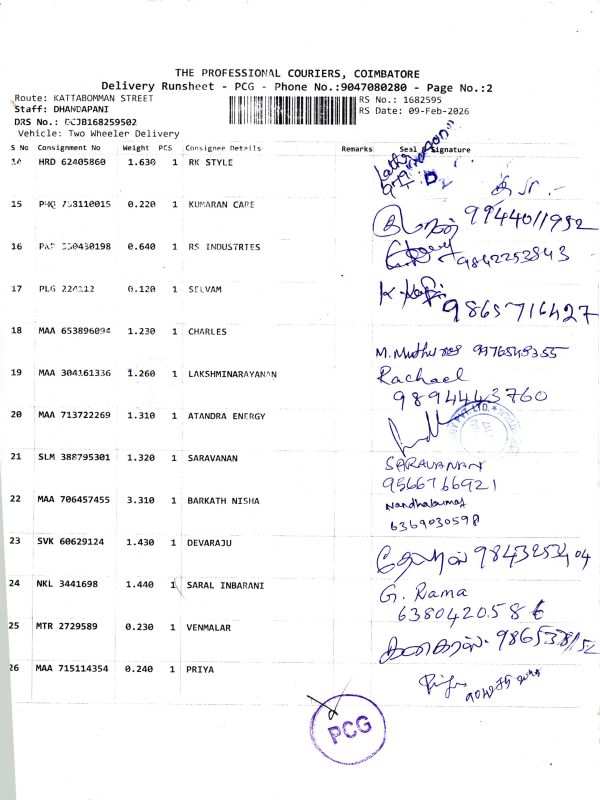 THE PROFESSIONAL COURIERS, COIMBATORE
Delivery Runsheet - PCG - Phone No.:9047080280 - Page No.:2
Route: KATTABOMMAN STREET
Staff: DHANDAPANI
DRS No.: 168259502
Vehicle: Two Wheeler Delivery
RS No.: 1682595
RS Date: 09-Feb-2026
S No Consignment No Weight PCS Consignee Details Remarks Seal & Signature
14 HRD 62405860 1.630 1 RK STYLE
15 0.220 1 KUMARAN CARE 9944011952
16 0.640 1 RS INDUSTRIES 9842253843
17 PLG 0.120 1 SELVAM 9865716427
18 MAA 653896094 1.230 1 CHARLES M. Muthu 9976549355
19 MAA 304161336 1.260 1 LAKSHMINARAYANAN Rachael
9894443760
20 MAA 713722269 1.310 1 ATANDRA ENERGY
21 SLM 388795301 1.320 1 SARAVANAN SARAVANAN
9566766921
22 MAA 706457455 3.310 1 BARKATH NISHA Nandhakumar
6369030598
23 SVK 60629124 1.430 1 DEVARAJU
24 NKL 3441698 1.440 1 SARAL INBARANI G. Rama
6380420586
25 MTR 2729589 0.230 1 VENMALAR
26 MAA 715114354 0.240 1 PRIYA
PCG